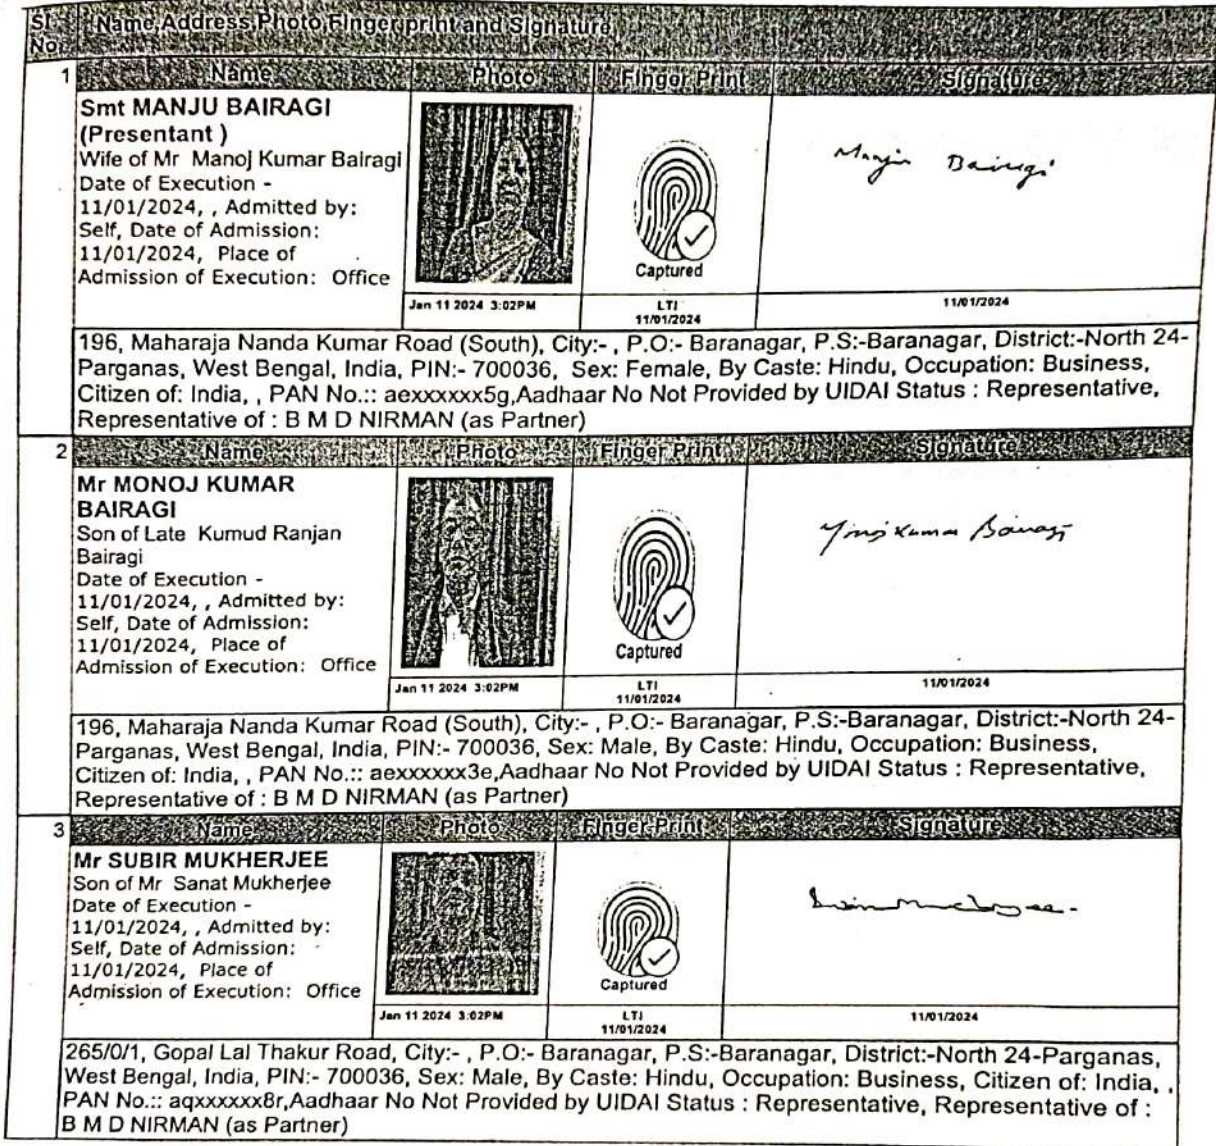 Sl No. Name, Address, Photo, Finger print and Signature
1 Name Photo Finger Print Signature
Smt MANJU BAIRAGI
(Presentant )
Wife of Mr Manoj Kumar Bairagi
Date of Execution -
11/01/2024, , Admitted by:
Self, Date of Admission:
11/01/2024, Place of
Admission of Execution: Office
Captured
Manju Bairagi
Jan 11 2024 3:02PM
LTI
11/01/2024
11/01/2024
196, Maharaja Nanda Kumar Road (South), City:- , P.O:- Baranagar, P.S:-Baranagar, District:-North 24-
Parganas, West Bengal, India, PIN:- 700036, Sex: Female, By Caste: Hindu, Occupation: Business,
Citizen of: India, , PAN No.:: aexxxxxx5g,Aadhaar No Not Provided by UIDAI Status : Representative,
Representative of : B M D NIRMAN (as Partner)
2 Name Photo Finger Print Signature
Mr MONOJ KUMAR
BAIRAGI
Son of Late Kumud Ranjan
Bairagi
Date of Execution -
11/01/2024, , Admitted by:
Self, Date of Admission:
11/01/2024, Place of
Admission of Execution: Office
Captured
Kumar Bairagi
Jan 11 2024 3:02PM
LTI
11/01/2024
11/01/2024
196, Maharaja Nanda Kumar Road (South), City:- , P.O:- Baranagar, P.S:-Baranagar, District:-North 24-
Parganas, West Bengal, India, PIN:- 700036, Sex: Male, By Caste: Hindu, Occupation: Business,
Citizen of: India, , PAN No.:: aexxxxxx3e,Aadhaar No Not Provided by UIDAI Status : Representative,
Representative of : B M D NIRMAN (as Partner)
3 Name Photo Finger Print Signature
Mr SUBIR MUKHERJEE
Son of Mr Sanat Mukherjee
Date of Execution -
11/01/2024, , Admitted by:
Self, Date of Admission:
11/01/2024, Place of
Admission of Execution: Office
Captured
Jan 11 2024 3:02PM
LTI
11/01/2024
11/01/2024
265/0/1, Gopal Lal Thakur Road, City:- , P.O:- Baranagar, P.S:-Baranagar, District:-North 24-Parganas,
West Bengal, India, PIN:- 700036, Sex: Male, By Caste: Hindu, Occupation: Business, Citizen of: India, ,
PAN No.:: aqxxxxxx8r,Aadhaar No Not Provided by UIDAI Status : Representative, Representative of :
B M D NIRMAN (as Partner)